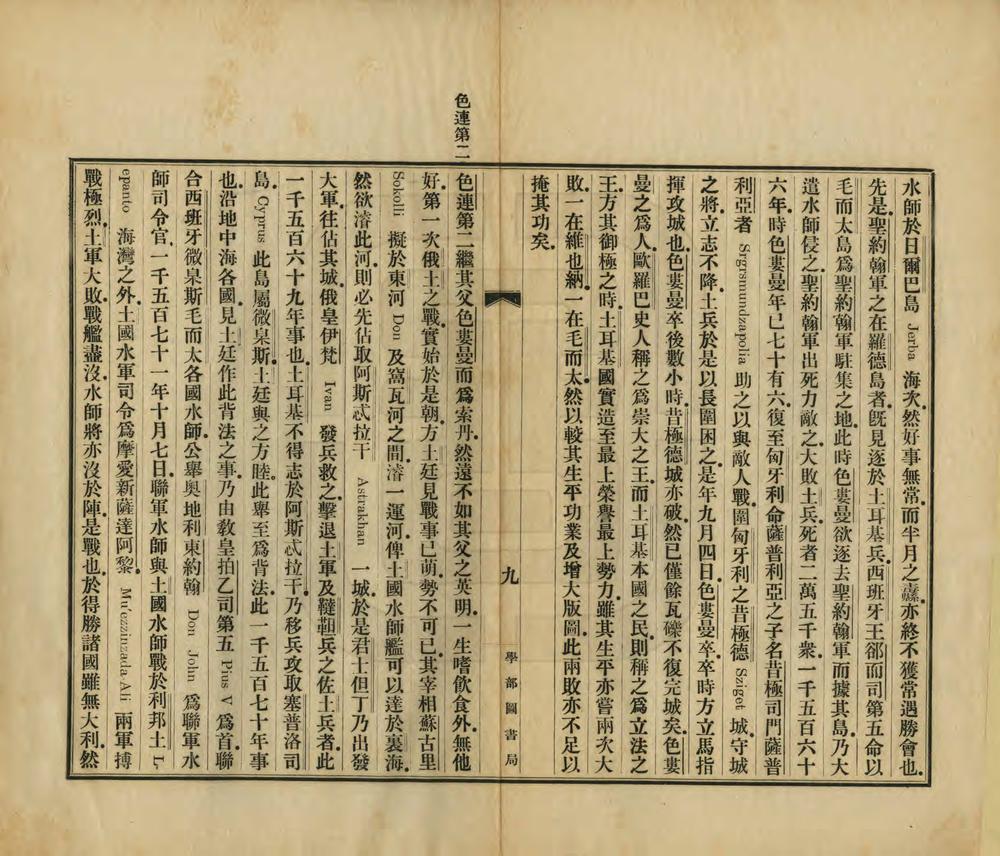 水師於日爾巴島 Jerba 海次然好事無常而半月之纛亦終不獲常遇勝會也
先是聖約翰軍之在羅德島者旣見逐於土耳基兵西班牙王郤而司第五命以
毛而太島爲聖約翰軍駐集之地此時色婁曼欲逐去聖約翰軍而據其島乃大
遣水師侵之聖約翰軍出死力敵之大敗土兵死者二萬五千衆一千五百六十
六年時色婁曼年已七十有六復至匈牙利命薩普利亞之子名昔極司門薩普
利亞者 Srgrsmundzapolia 助之以與敵人戰圍匈牙利之昔極德 Sziget 城守城
之將立志不降土兵於是以長圍困之是年九月四日色婁曼卒卒時方立馬指
揮攻城也色婁曼卒後數小時昔極德城亦破然已僅餘瓦礫不復完城矣色婁
曼之爲人歐羅巴史人稱之爲崇大之王而土耳基本國之民則稱之爲立法之
王方其御極之時土耳基國實造至最上榮譽最上勢力雖其生平亦嘗兩次大
敗一在維也納一在毛而太然以較其生平功業及增大版圖此兩敗亦不足以
掩其功矣
九
學部圖書局
色連第二
色連第二繼其父色婁曼而爲索丹然遠不如其父之英明一生嗜飲食外無他
好第一次俄土之戰實始於是朝方土廷見戰事已萌勢不可已其宰相蘇古里
Sokolli 擬於東河 Don 及窩瓦河之間濬一運河俾土國水師艦可以達於裏海
然欲濬此河則必先佔取阿斯忒拉干 Astrakhan 一城於是君士但丁乃出發
大軍往佔其城俄皇伊梵 Ivan 發兵救之擊退土軍及韃靼兵之佐土兵者此
一千五百六十九年事也土耳基不得志於阿斯忒拉干乃移兵攻取塞普洛司
島 Cyprus 此島屬微臬斯土廷與之方睦此舉至爲背法此一千五百七十年事
也沿地中海各國見土廷作此背法之事乃由敎皇拍乙司第五 Pius V 爲首聯
合西班牙微臬斯毛而太各國水師公舉奧地利東約翰 Don John 爲聯軍水
師司令官一千五百七十一年十月七日聯軍水師與土國水師戰於利邦土 L-
epanto 海灣之外土國水軍司令爲摩愛新薩達阿黎 Mu'ezzinzada Ali 兩軍搏
戰極烈土軍大敗戰艦盡沒水師將亦沒於陣是戰也於得勝諸國雖無大利然